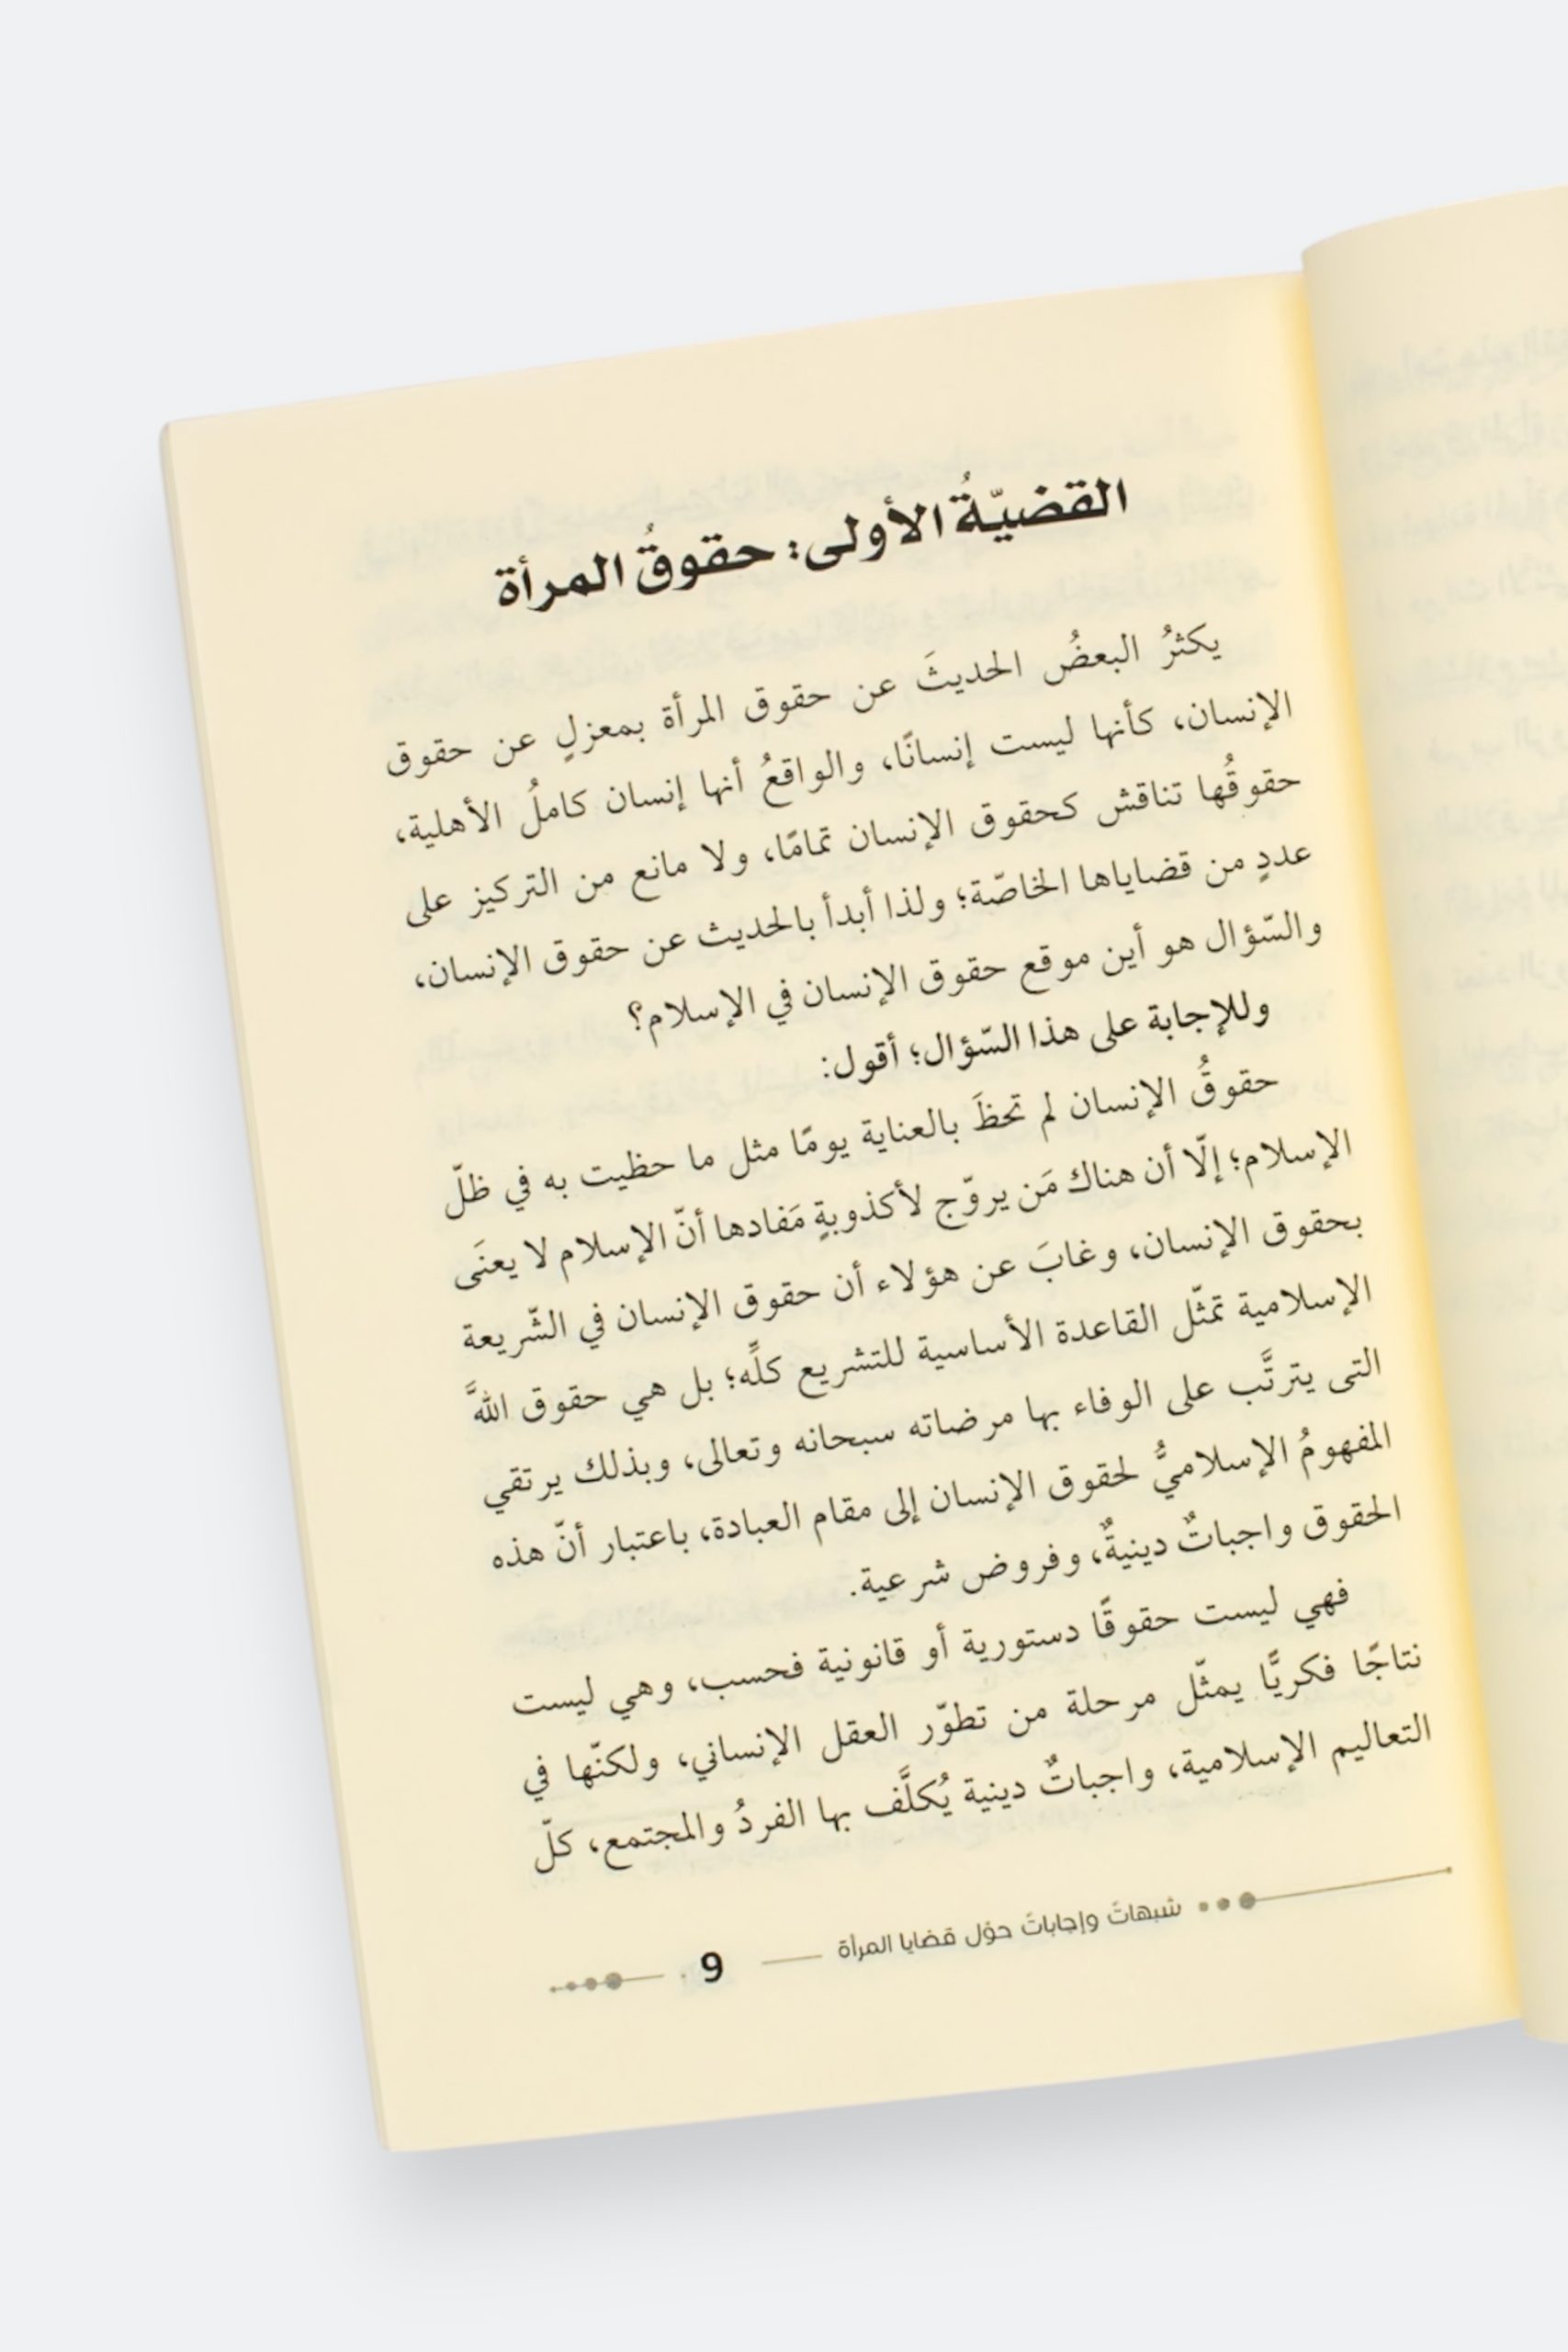 القضيّةُ الأولى: حقوقُ المرأة
يكثرُ البعضُ الحديثَ عن حقوق المرأة بمعزلٍ عن حقوق
الإنسان، كأنها ليست إنسانًا، والواقعُ أنها إنسان كاملُ الأهلية،
حقوقُها تناقش كحقوق الإنسان تمامًا، ولا مانع من التركيز على
عددٍ من قضاياها الخاصّة؛ ولذا أبدأ بالحديث عن حقوق الإنسان،
والسّؤال هو أين موقع حقوق الإنسان في الإسلام؟
وللإجابة على هذا السّؤال؛ أقول:
حقوقُ الإنسان لم تحظَ بالعناية يومًا مثل ما حظيت به في ظلّ
الإسلام؛ إلّا أن هناك مَن يروّج لأكذوبةٍ مَفادها أنّ الإسلام لا يعنَى
بحقوق الإنسان، وغابَ عن هؤلاء أن حقوق الإنسان في الشّريعة
الإسلامية تمثّل القاعدة الأساسية للتشريع كلِّه؛ بل هي حقوق اللهَّ
التى يترتَّب على الوفاء بها مرضاته سبحانه وتعالى، وبذلك يرتقي
المفهومُ الإسلاميُّ لحقوق الإنسان إلى مقام العبادة، باعتبار أنّ هذه
الحقوق واجباتٌ دينيةٌ، وفروض شرعية.
فهي ليست حقوقًا دستورية أو قانونية فحسب، وهي ليست
نتاجًا فكريًّا يمثّل مرحلة من تطوّر العقل الإنساني، ولكنّها في
التعاليم الإسلامية، واجباتٌ دينية يُكلَّف بها الفردُ والمجتمع، كلّ
شبهاتَ وإجاباتَ حوْل قضايا المرأة 9